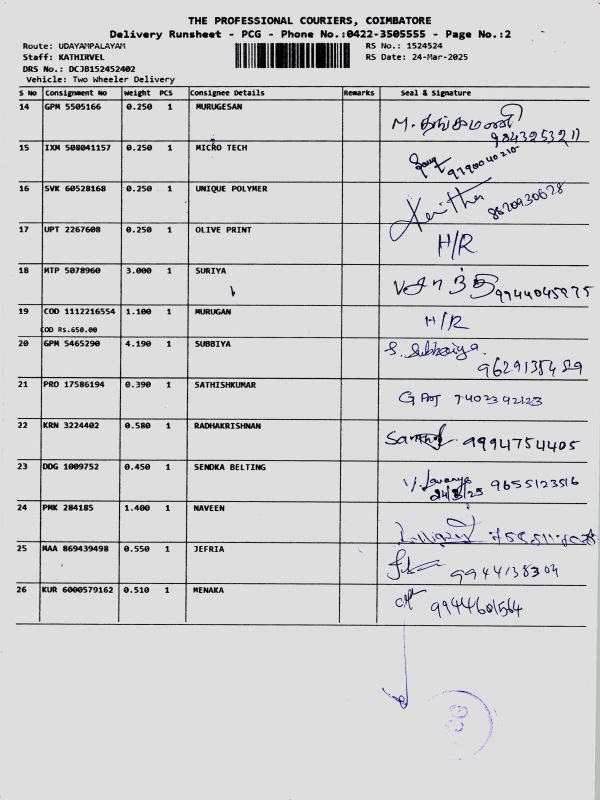 THE PROFESSIONAL COURIERS, COIMBATORE
Delivery Runsheet - PCG - Phone No.:0422-3505555 - Page No.:2
Route: UDAYAMPALAYAM RS No.: 1524524
Staff: KATHIRVEL RS Date: 24-Mar-2025
DRS No.: DCJB152452402
Vehicle: Two Wheeler Delivery
S No Consignment No Weight PCS Consignee Details Remarks Seal & Signature
14 GPM 5505166 0.250 1 MURUGESAN M. தங்கமணி
9843253211
15 IXM 508041157 0.250 1 MICRO TECH 9790040210
16 SVK 60528168 0.250 1 UNIQUE POLYMER 8620930628
17 UPT 2267608 0.250 1 OLIVE PRINT H/R
18 MTP 5078960 3.000 1 SURIYA 9944045975
19 COD 1112216554 1.100 1 MURUGAN H/R
COD RS.650.00
20 GPM 5465290 4.190 1 SUBBIYA S. Subbaiya
21 PRO 17586194 0.390 1 SATHISHKUMAR 7402342123
22 KRN 3224402 0.580 1 RADHAKRISHNAN 9994754405
23 DDG 1009752 0.450 1 SENDKA BELTING V. Lavanya 9655123516
24/3/25
24 PMK 284185 1.400 1 NAVEEN
25 MAA 869439498 0.550 1 JEFRIA 9944138304
26 KUR 6000579162 0.510 1 MENAKA 9944601564